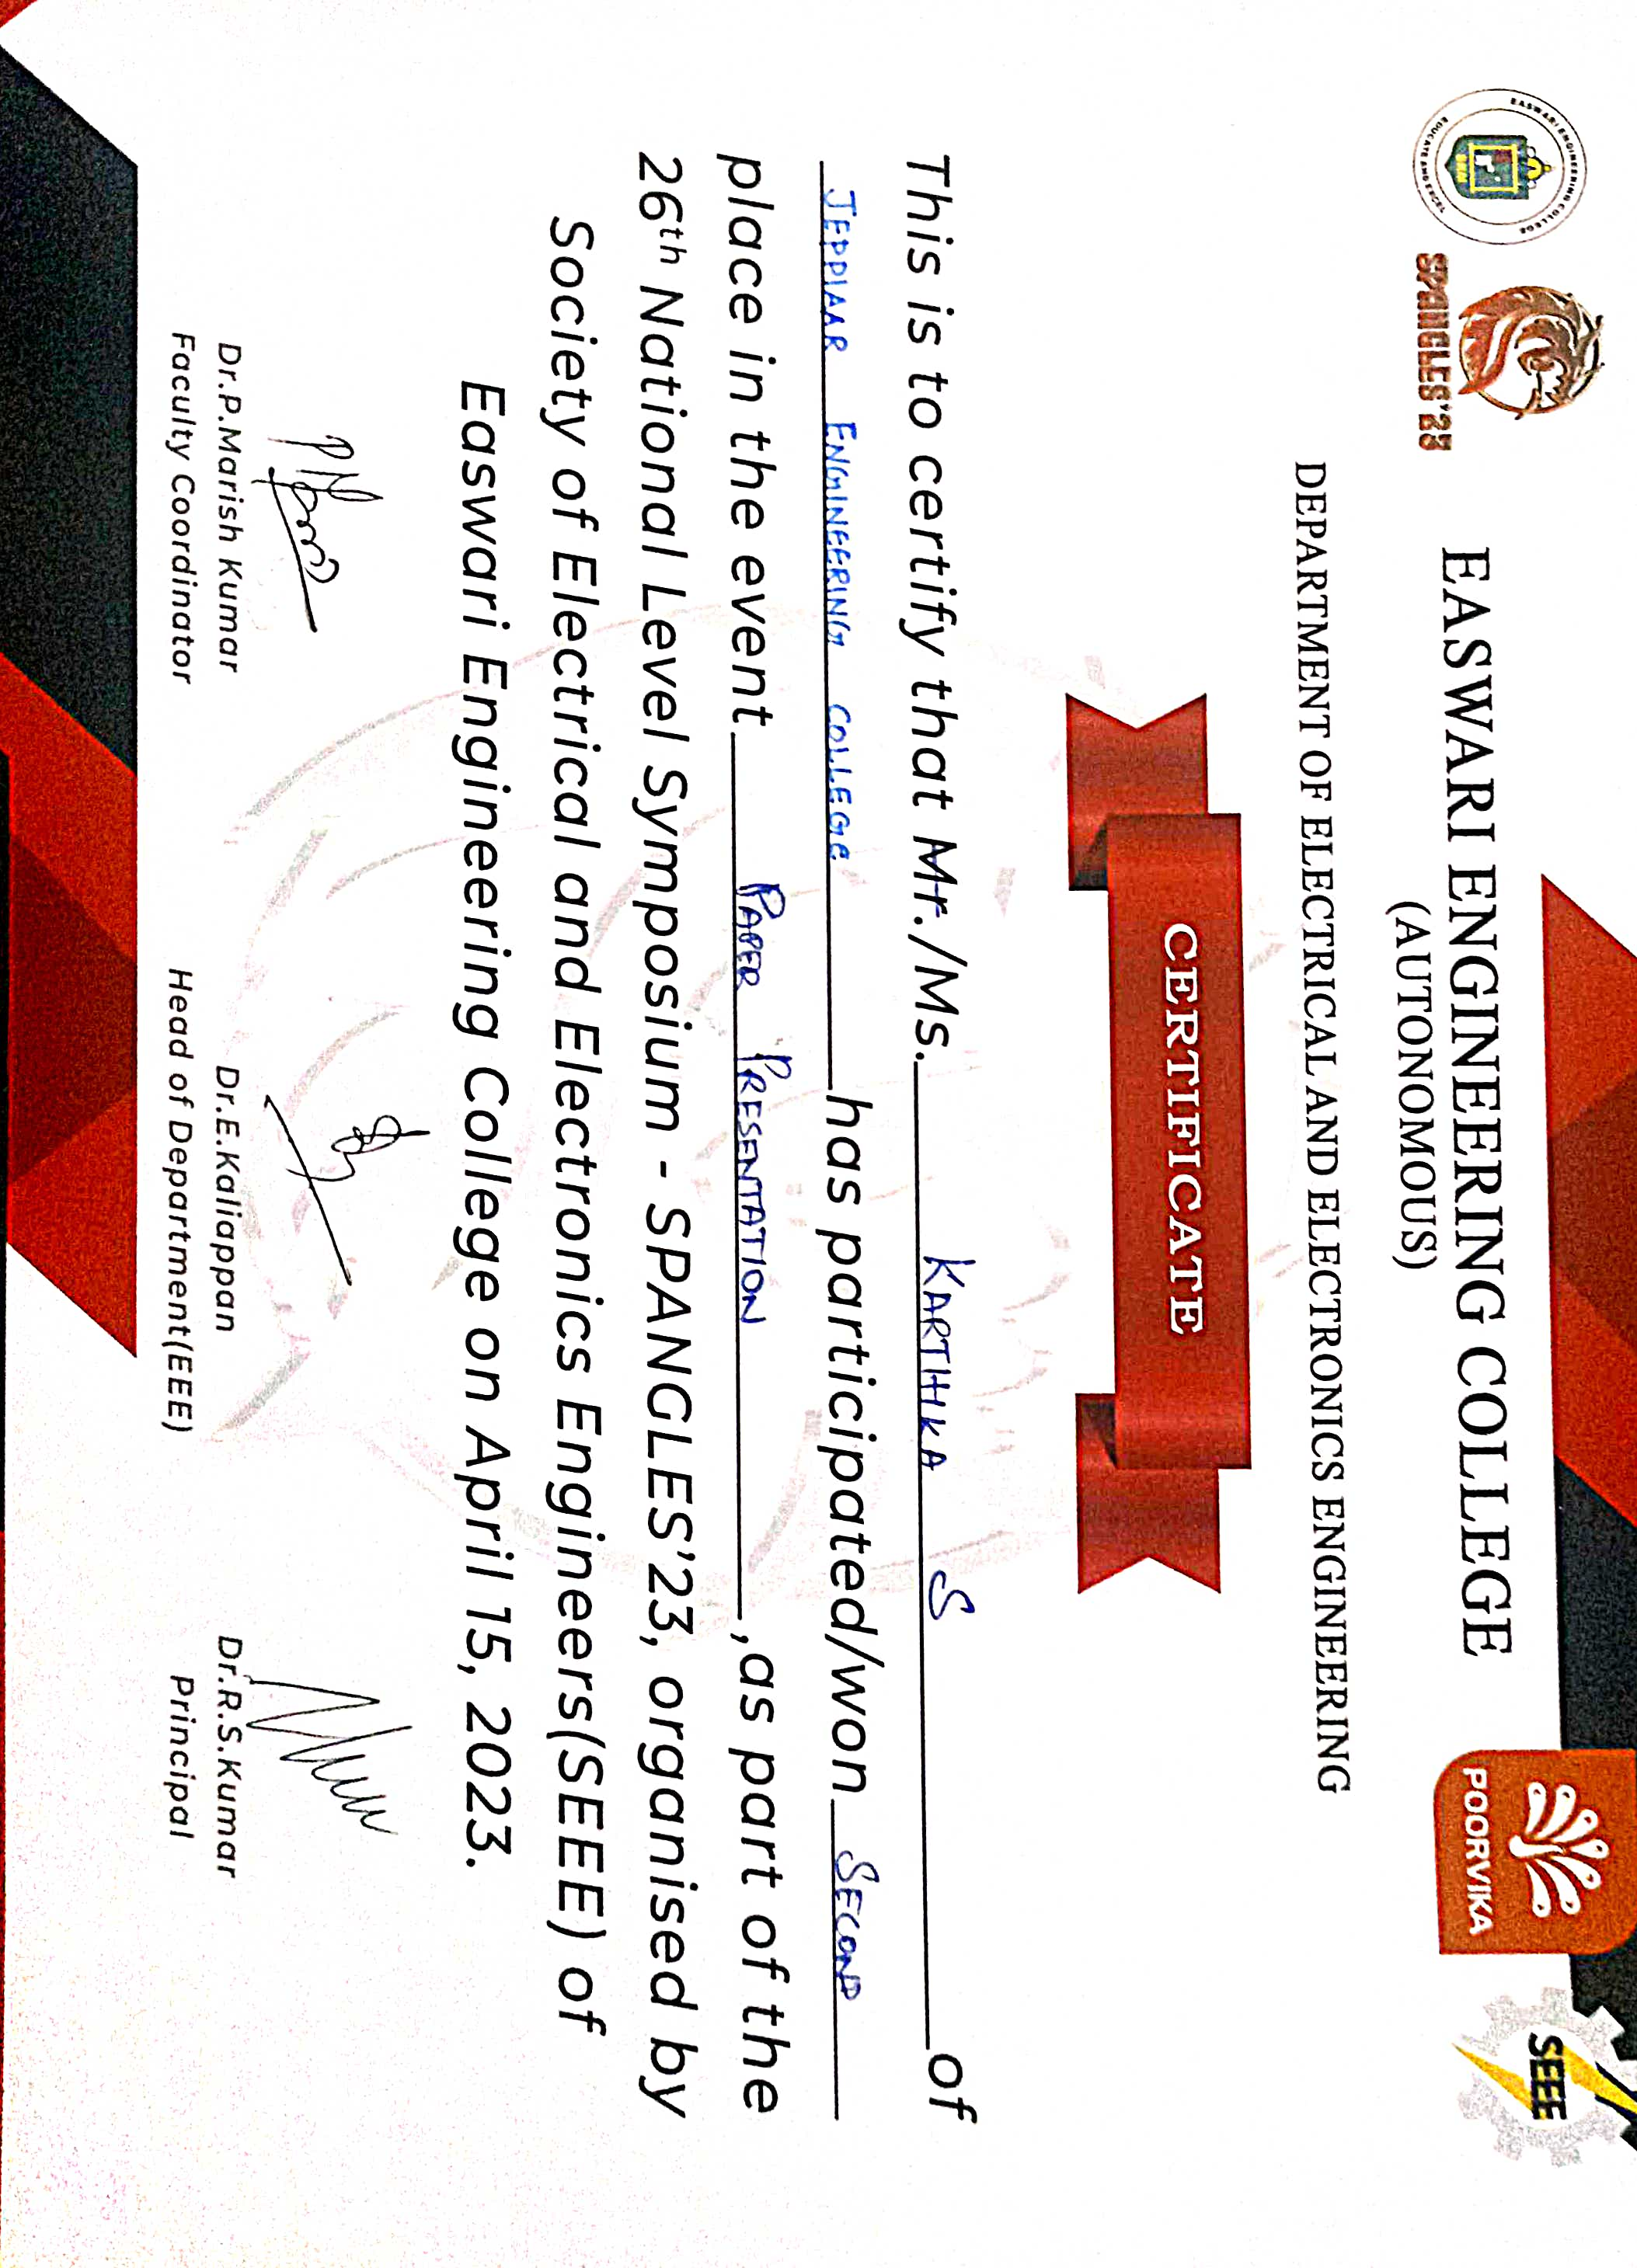 EASWARI ENGINEERING COLLEGE TECHNOLOGY EDUCATE
SRM
SPANGLES'23
EASWARI ENGINEERING COLLEGE
(AUTONOMOUS)
POORVIKA
SEEE
DEPARTMENT OF ELECTRICAL AND ELECTRONICS ENGINEERING
CERTIFICATE
This is to certify that Mr./Ms. KARTHIKA S of
JEPPIAAR ENGINEERING COLLEGE has participated/won SECOND
place in the event PAPER PRESENTATION ,as part of the
26th National Level Symposium - SPANGLES'23, organised by
Society of Electrical and Electronics Engineers(SEEE) of
Easwari Engineering College on April 15, 2023.
Dr.P.Marish Kumar
Faculty Coordinator
Dr.E.Kaliappan
Head of Department(EEE)
Dr.R.S.Kumar
Principal